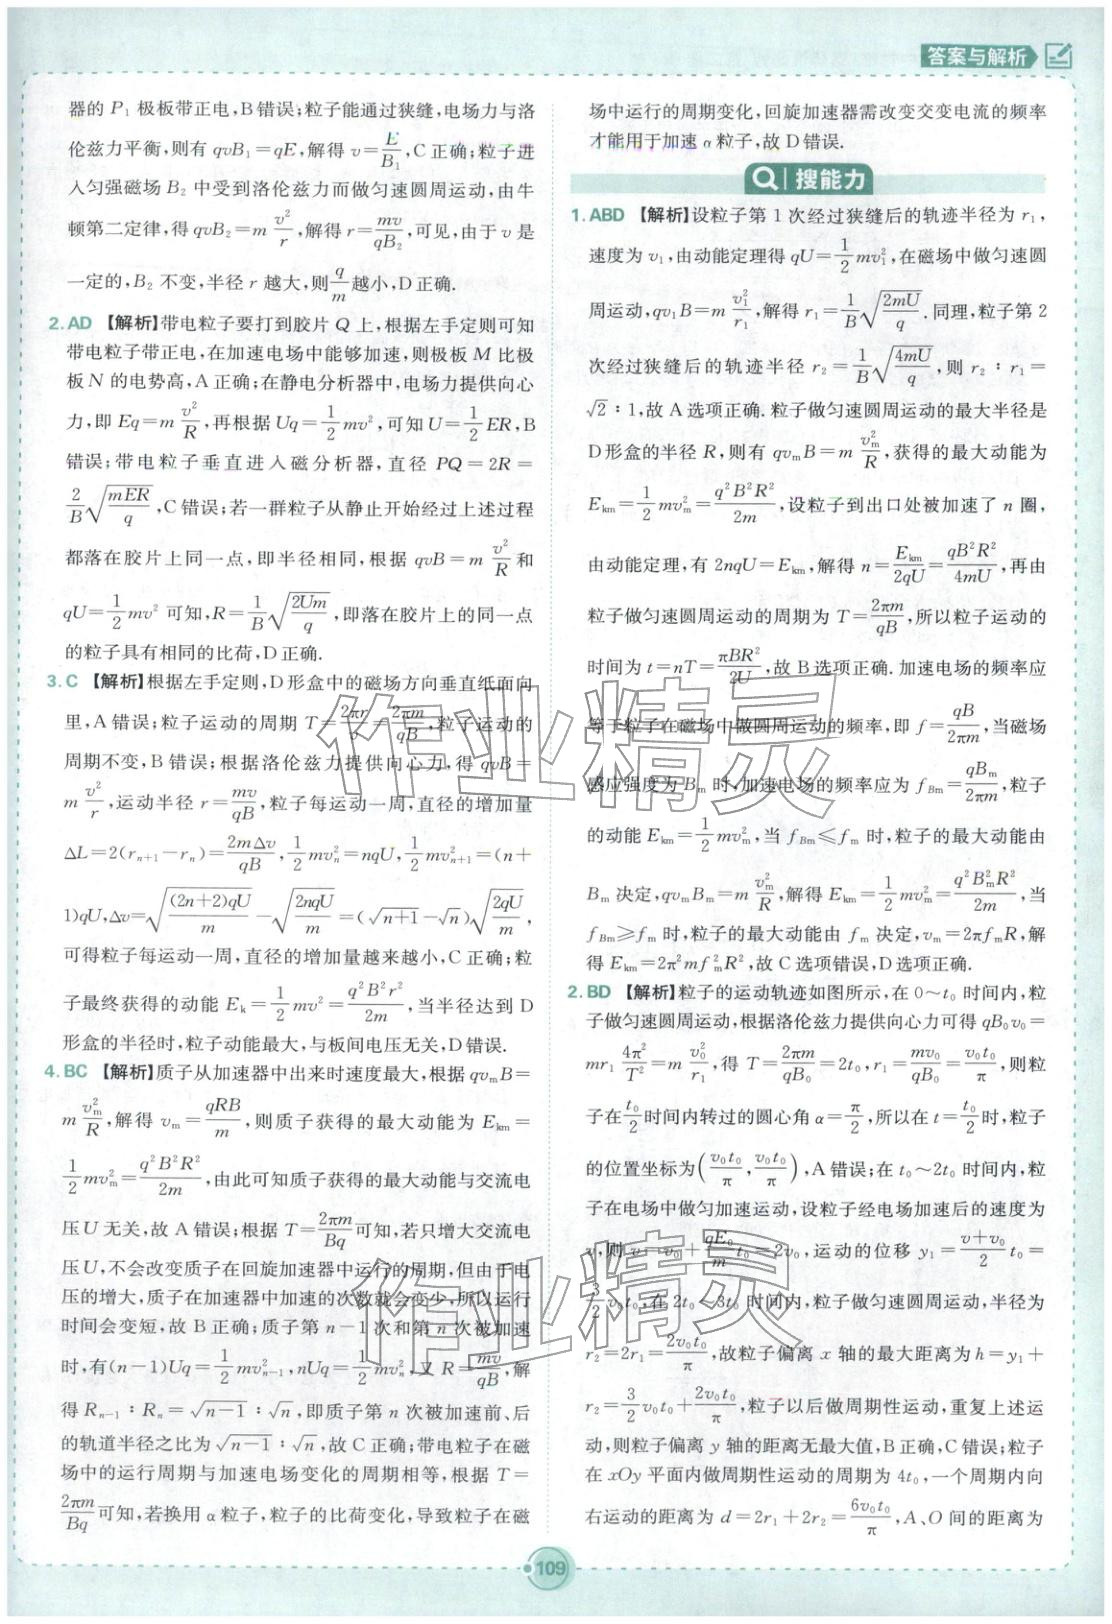 答案与解析
器的 P₁ 极板带正电,B错误;粒子能通过狭缝,电场力与洛
伦兹力平衡,则有 qvB₁=qE,解得 v=E/B₁,C正确;粒子进
入匀强磁场 B₂ 中受到洛伦兹力而做匀速圆周运动,由牛
顿第二定律,得 qvB₂=m v²/r,解得 r=mv/qB₂,可见,由于 v 是
一定的,B₂ 不变,半径 r 越大,则 q/m 越小,D正确.
2.AD 【解析】带电粒子要打到胶片 Q 上,根据左手定则可知
带电粒子带正电,在加速电场中能够加速,则极板 M 比极
板 N 的电势高,A正确;在静电分析器中,电场力提供向心
力,即 Eq=m v²/R,再根据 Uq=1/2 mv²,可知 U=1/2 ER,B
错误;带电粒子垂直进入磁分析器,直径 PQ=2R=
2/B √(mER/q),C错误;若一群粒子从静止开始经过上述过程
都落在胶片上同一点,即半径相同,根据 qvB=m v²/R 和
qU=1/2 mv² 可知,R=1/B √(2Um/q),即落在胶片上的同一点
的粒子具有相同的比荷,D正确.
3.C 【解析】根据左手定则,D形盒中的磁场方向垂直纸面向
里,A错误;粒子运动的周期 T=2πr/v=2πm/qB,粒子运动的
周期不变,B错误;根据洛伦兹力提供向心力,得 qvB=
m v²/r,运动半径 r=mv/qB,粒子每运动一周,直径的增加量
ΔL=2(rₙ₊₁-rₙ)=2mΔv/qB,1/2 mvₙ²=nqU,1/2 mvₙ₊₁²=(n+
1)qU,Δv=√((2n+2)qU/m)-√(2nqU/m)=(√(n+1)-√n)√(2qU/m),
可得粒子每运动一周,直径的增加量越来越小,C正确;粒
子最终获得的动能 Eₖ=1/2 mv²=q²B²r²/2m,当半径达到 D
形盒的半径时,粒子动能最大,与板间电压无关,D错误.
4.BC 【解析】质子从加速器中出来时速度最大,根据 qvₘB=
m vₘ²/R,解得 vₘ=qRB/m,则质子获得的最大动能为 Eₖₘ=
1/2 mvₘ²=q²B²R²/2m,由此可知质子获得的最大动能与交流电
压 U 无关,故 A 错误;根据 T=2πm/Bq 可知,若只增大交流电
压 U,不会改变质子在回旋加速器中运行的周期,但由于电
压的增大,质子在加速器中加速的次数就会变少,所以运行
时间会变短,故 B 正确;质子第 n-1 次和第 n 次被加速
时,有(n-1)Uq=1/2 mvₙ₋₁²,nUq=1/2 mvₙ²,又 R=mv/qB,解
得 Rₙ₋₁∶Rₙ=√(n-1)∶√n,即质子第 n 次被加速前、后
的轨道半径之比为√(n-1)∶√n,故 C 正确;带电粒子在磁
场中的运行周期与加速电场变化的周期相等,根据 T=
2πm/Bq 可知,若换用 α 粒子,粒子的比荷变化,导致粒子在磁
场中运行的周期变化,回旋加速器需改变交变电流的频率
才能用于加速 α 粒子,故 D 错误.
搜能力
1.ABD 【解析】设粒子第 1 次经过狭缝后的轨迹半径为 r₁,
速度为 v₁,由动能定理得 qU=1/2 mv₁²,在磁场中做匀速圆
周运动,qv₁B=m v₁²/r₁,解得 r₁=1/B √(2mU/q).同理,粒子第 2
次经过狭缝后的轨迹半径 r₂=1/B √(4mU/q),则 r₂∶r₁=
√2∶1,故 A 选项正确.粒子做匀速圆周运动的最大半径是
D 形盒的半径 R,则有 qvₘB=m vₘ²/R,获得的最大动能为
Eₖₘ=1/2 mvₘ²=q²B²R²/2m,设粒子到出口处被加速了 n 圈,
由动能定理,有 2nqU=Eₖₘ,解得 n=Eₖₘ/2qU=qB²R²/4mU,再由
粒子做匀速圆周运动的周期为 T=2πm/qB,所以粒子运动的
时间为 t=nT=πBR²/2U,故 B 选项正确.加速电场的频率应
等于粒子在磁场中做圆周运动的频率,即 f=qB/2πm,当磁场
感应强度为 Bₘ 时,加速电场的频率应为 f_Bm=qBₘ/2πm,粒子
的动能 Eₖₘ=1/2 mvₘ²,当 f_Bm≤fₘ 时,粒子的最大动能由
Bₘ 决定,qvₘBₘ=m vₘ²/R,解得 Eₖₘ=1/2 mvₘ²=q²Bₘ²R²/2m,当
f_Bm≥fₘ 时,粒子的最大动能由 fₘ 决定,vₘ=2πfₘR,解
得 Eₖₘ=2π²mfₘ²R²,故 C 选项错误,D 选项正确.
2.BD 【解析】粒子的运动轨迹如图所示,在 0～t₀ 时间内,粒
子做匀速圆周运动,根据洛伦兹力提供向心力可得 qB₀v₀=
mr₁ 4π²/T²=m v₀²/r₁,得 T=2πm/qB₀=2t₀,r₁=mv₀/qB₀=v₀t₀/π,则粒
子在 t₀/2 时间内转过的圆心角 α=π/2,所以在 t=t₀/2 时,粒子
的位置坐标为(v₀t₀/π,v₀t₀/π),A错误;在 t₀～2t₀ 时间内,粒
子在电场中做匀加速运动,设粒子经电场加速后的速度为
v,则 v=v₀+qE₀/m t₀=2v₀,运动的位移 y₁=(v+v₀)/2 t₀=
3/2 v₀t₀,在 2t₀～3t₀ 时间内,粒子做匀速圆周运动,半径为
r₂=2r₁=2v₀t₀/π,故粒子偏离 x 轴的最大距离为 h=y₁+
r₂=3/2 v₀t₀+2v₀t₀/π,粒子以后做周期性运动,重复上述运
动,则粒子偏离 y 轴的距离无最大值,B正确,C错误;粒子
在 xOy 平面内做周期性运动的周期为 4t₀,一个周期内向
右运动的距离为 d=2r₁+2r₂=6v₀t₀/π,A、O 间的距离为
109
作业精灵
作业精灵